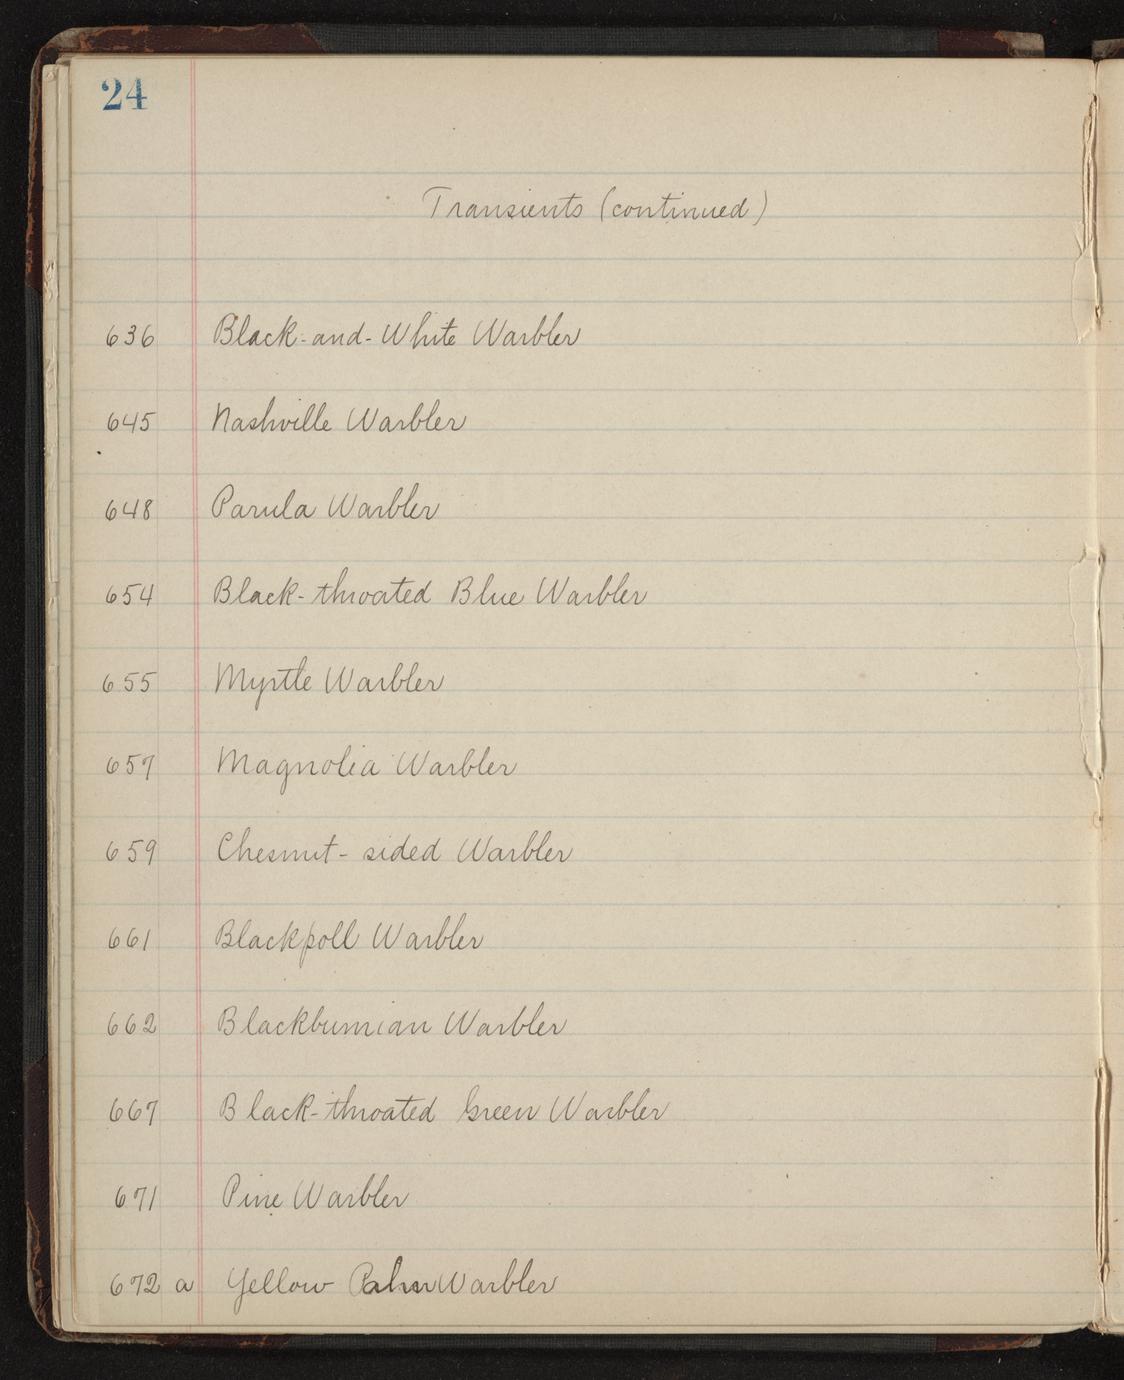 24
Transients (continued)
636 Black-and-White Warbler
645 Nashville Warbler
648 Parula Warbler
654 Black-throated Blue Warbler
655 Myrtle Warbler
657 Magnolia Warbler
659 Chesnut-sided Warbler
661 Blackpoll Warbler
662 Blackburnian Warbler
667 Black-throated Green Warbler
671 Pine Warbler
672 a Yellow Palm Warbler